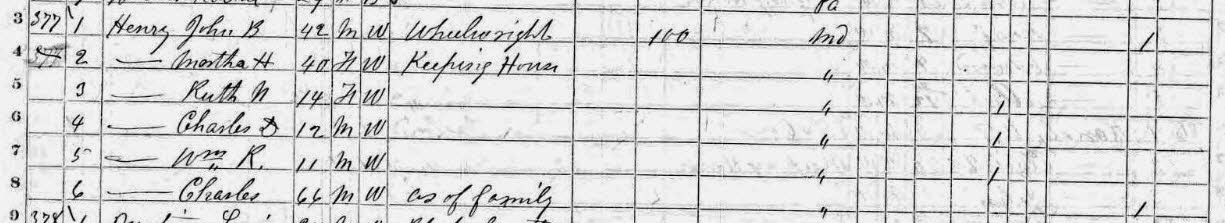 3 377 1 Henry John B 42 M W Wheelwright 100 Md 1
4 377 2 — Martha H 40 F W Keeping House "
5 3 — Ruth N 14 F W " 1
6 4 — Charles D 12 M W " 1
7 5 — Wm R. 11 M W " 1
8 6 — Charles 66 M W as of family " 1
9 378 1